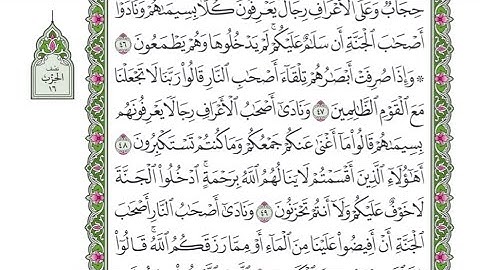 حِجَابٌ وَعَلَى ٱلْأَعْرَافِ رِجَالٌ يَعْرِفُونَ كُلًّۢا بِسِيمَىٰهُمْ وَنَادَوْا۟
أَصْحَٰبَ ٱلْجَنَّةِ أَن سَلَٰمٌ عَلَيْكُمْ ۚ لَمْ يَدْخُلُوهَا وَهُمْ يَطْمَعُونَ ٤٦
* وَإِذَا صُرِفَتْ أَبْصَٰرُهُمْ تِلْقَآءَ أَصْحَٰبِ ٱلنَّارِ قَالُوا۟ رَبَّنَا لَا تَجْعَلْنَا
مَعَ ٱلْقَوْمِ ٱلظَّٰلِمِينَ ٤٧ وَنَادَىٰٓ أَصْحَٰبُ ٱلْأَعْرَافِ رِجَالًا يَعْرِفُونَهُم
بِسِيمَىٰهُمْ قَالُوا۟ مَآ أَغْنَىٰ عَنكُمْ جَمْعُكُمْ وَمَا كُنتُمْ تَسْتَكْبِرُونَ ٤٨
أَهَٰٓؤُلَآءِ ٱلَّذِينَ أَقْسَمْتُمْ لَا يَنَالُهُمُ ٱللَّهُ بِرَحْمَةٍ ۚ ٱدْخُلُوا۟ ٱلْجَنَّةَ
لَا خَوْفٌ عَلَيْكُمْ وَلَآ أَنتُمْ تَحْزَنُونَ ٤٩ وَنَادَىٰٓ أَصْحَٰبُ ٱلنَّارِ أَصْحَٰبَ
ٱلْجَنَّةِ أَنْ أَفِيضُوا۟ عَلَيْنَا مِنَ ٱلْمَآءِ أَوْ مِمَّا رَزَقَكُمُ ٱللَّهُ ۚ قَالُوٓا۟
نصف
الحزب
١٦